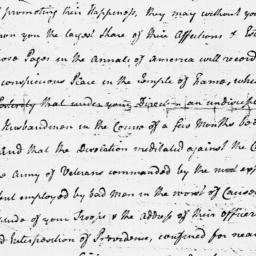 promoting their Happiness, they may without you
you the largest Share of their Affections & Est
whose Pages in the Annals of America will record
conspicuous Place in the Temple of Fame, whe
Posterity that under your Direction an undiscipl
Husbandmen in the Course of a few Months be
and that the Desolation meditated against the C
Army of Veterans commanded by the most ex
employed by bad Men in the worst of Causes
tude of your Troops & the address of their Officer
Interposition of Providence, confined for near